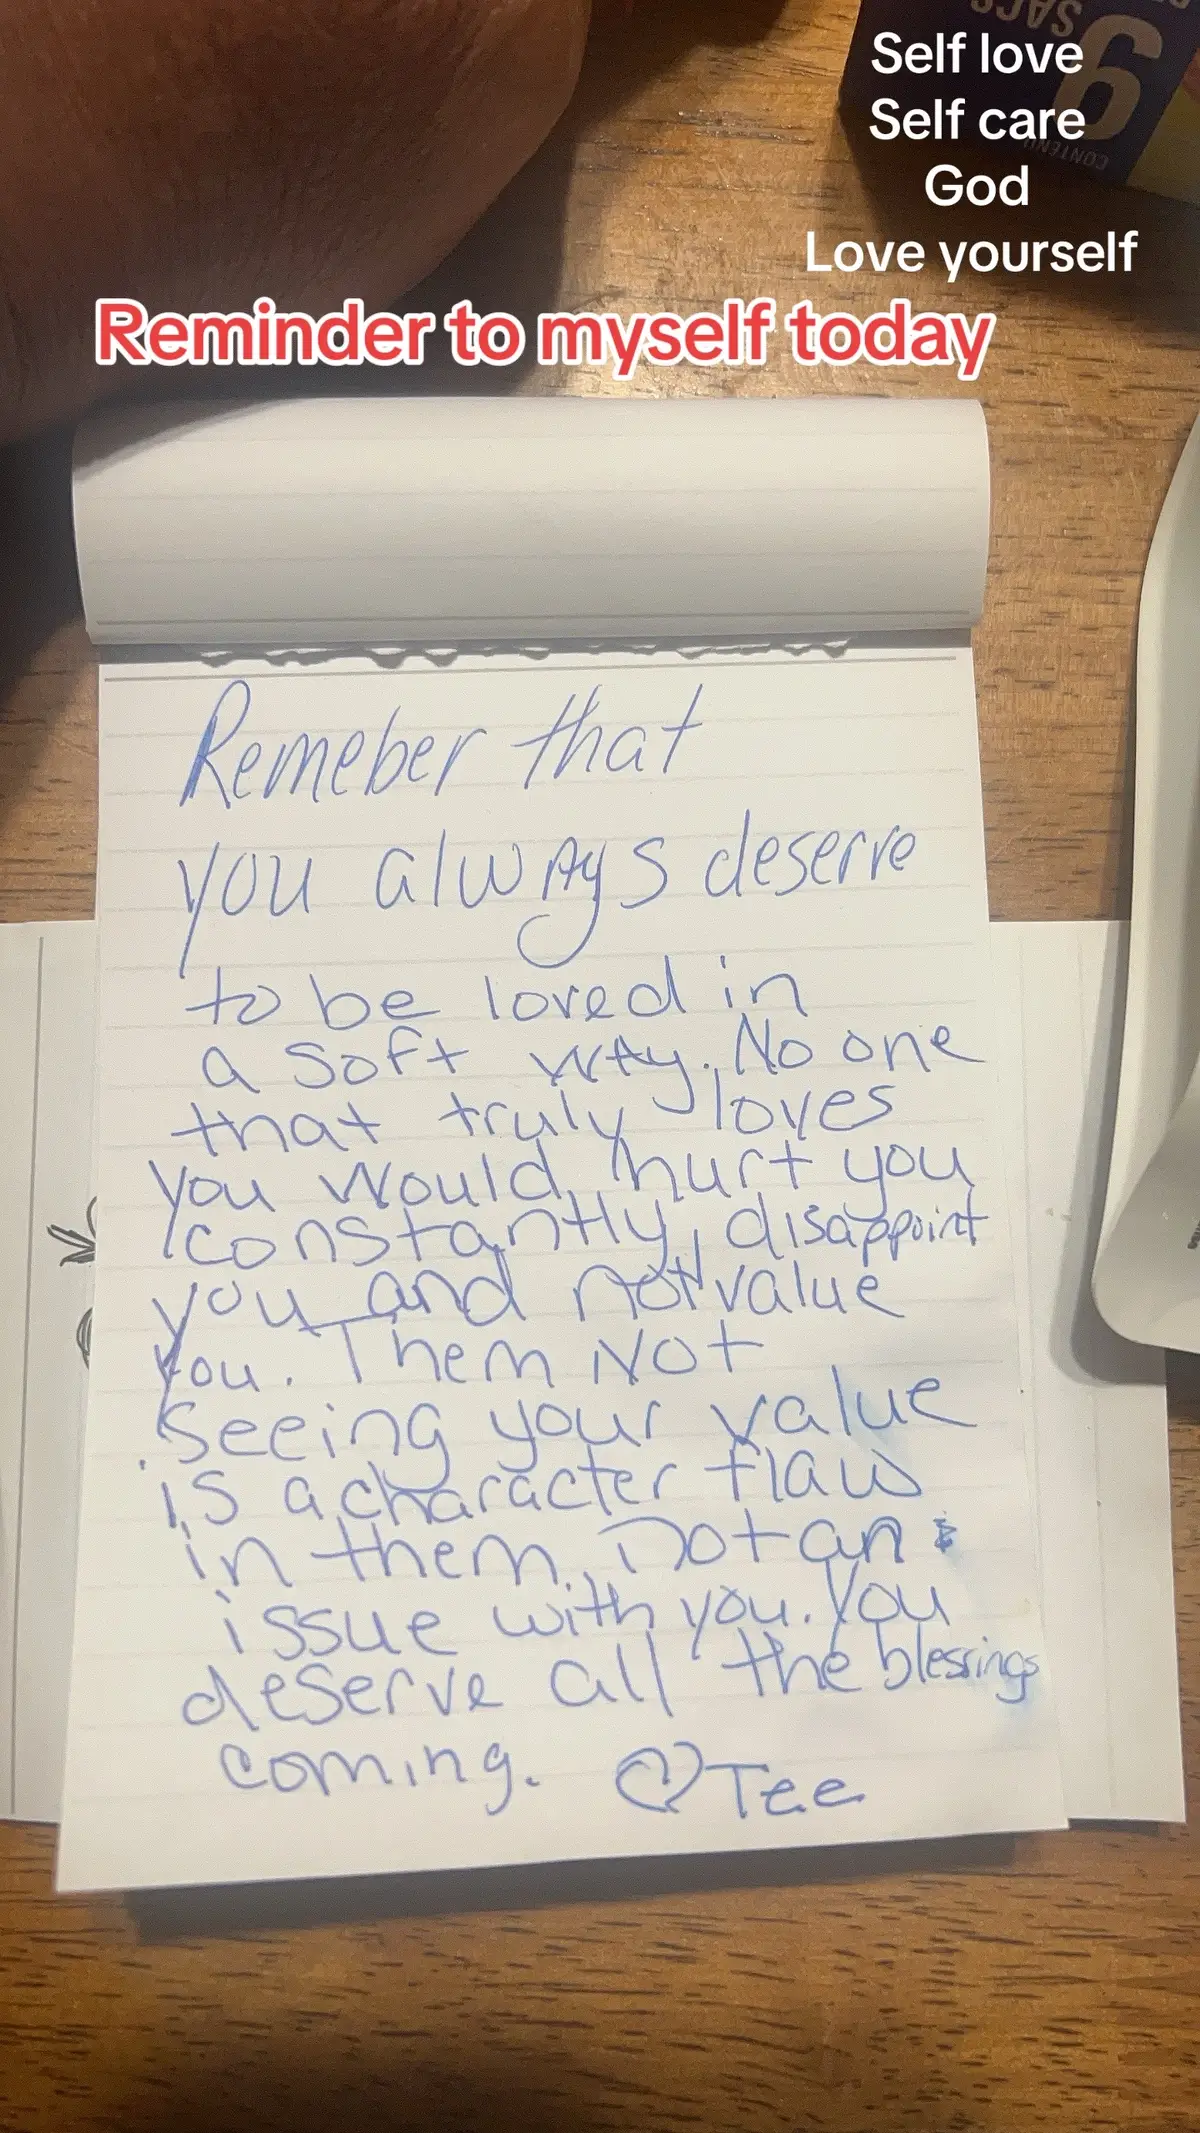 SACS
9
CONTENU
Self love
Self care
God
Love yourself
Reminder to myself today
Remeber that
you always deserve
to be loved in
a soft way. No one
that truly loves
you would hurt you
constantly, disappoint
you and not value
you. Them Not
seeing your value
is a character flaw
in them, not an
issue with you. You
deserve all the blessings
coming. ♡ Tee